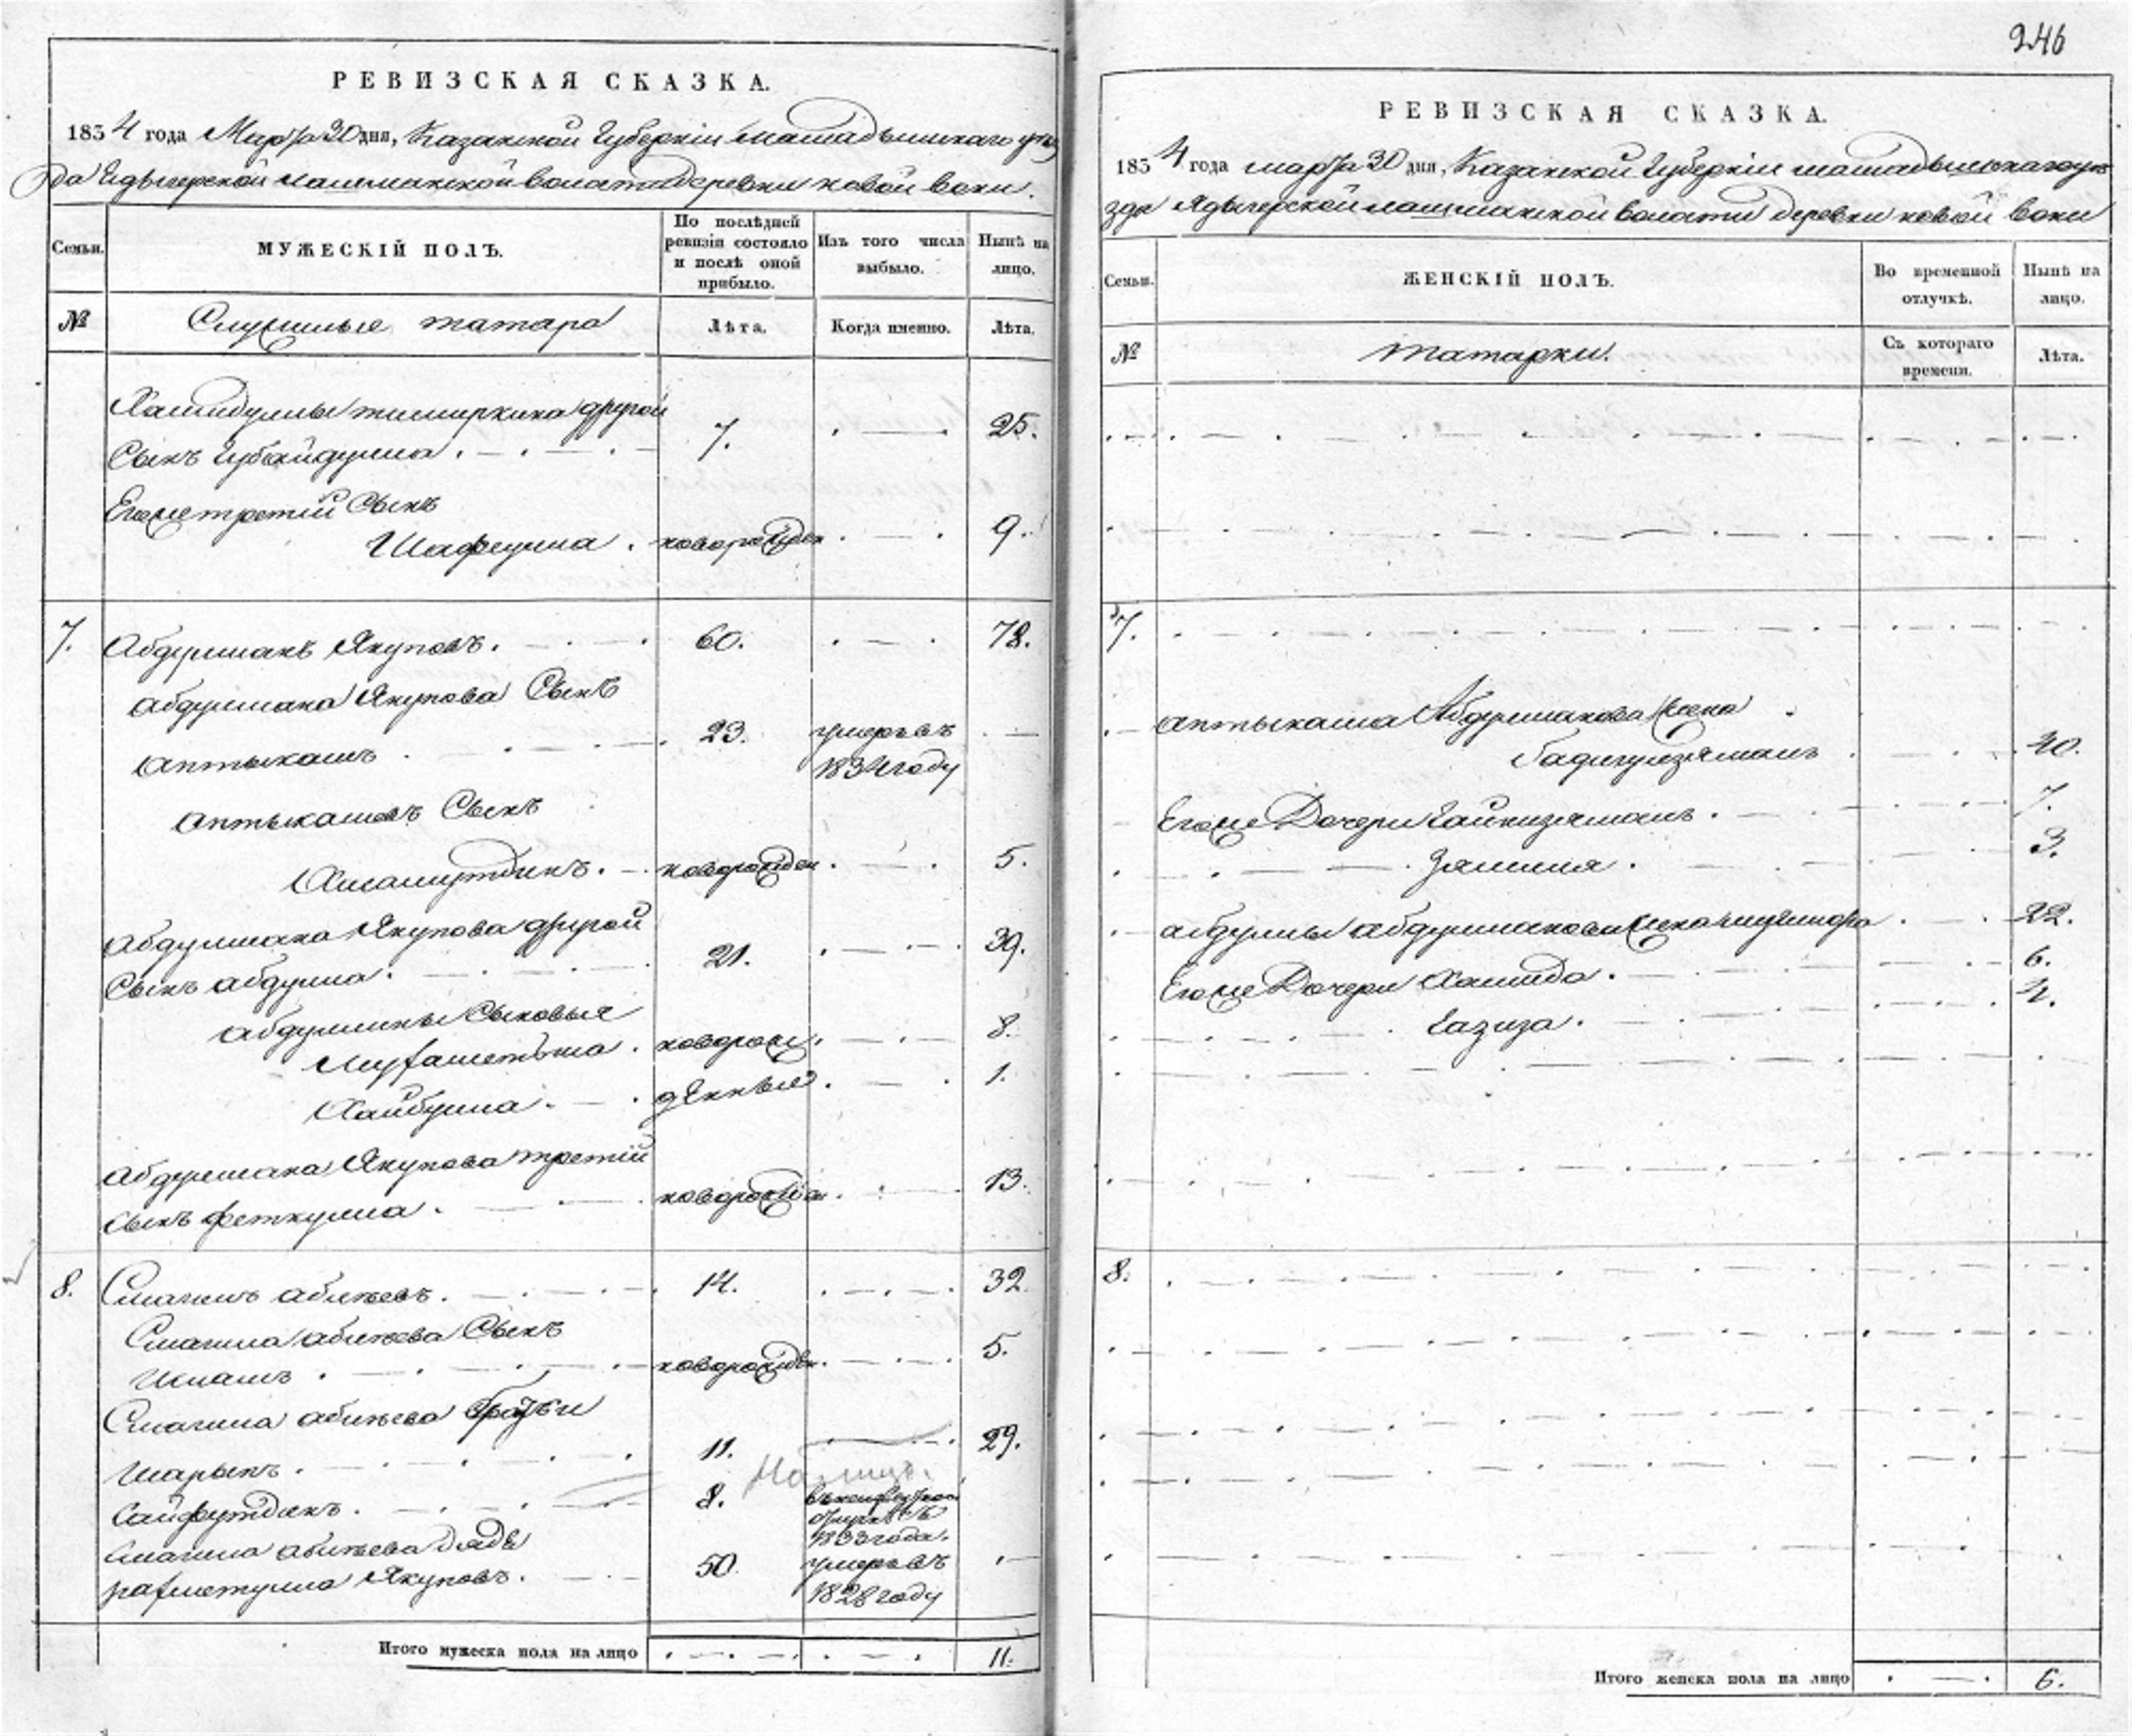 РЕВИЗСКАЯ СКАЗКА.
1834 года Марта 30 дня, Казанской Губернии мамадышскаго уез
да Ядыгерской лашманской волости деревни новой воки.
Семьи.
МУЖЕСКІЙ ПОЛЪ.
По послѣдней ревизіи состояло и послѣ оной прибыло.
Изъ того числа выбыло.
Нынѣ на лицо.
№
Служилые татара
Лѣта.
Когда именно.
Лѣта.
Хамидуллы тимиркина другой
Сынъ Губайдулла 7. 25.
Егоже третій Сынъ
Шафеулла новорожден 9.
7. Абдулманъ Якуповъ. 60. 78.
Абдулмана Якупова Сынъ
Аптыкашъ 23. умеръ въ 1834 году
Аптыкашевъ Сынъ
Хисамутдинъ. новорожден 5.
Абдулмана Якупова другой
Сынъ абдулла. 21. 39.
абдуллины Сыновья
новорож 8.
Хайбулла. денные 1.
Абдулмана Якупова третій
сынъ феткулла. новорожден 13.
8. Смагилъ абшевъ. 14. 32
Смагила Сынъ
новорожден. 5.
Смагила братья
Шарыпъ. 11. 29.
Сайфутдинъ. 8.
1833 года.
Смагила дядя
рахметулла Якуповъ. 50. умеръ въ 1828 году
Итого мужеска пола на лицо 11.
246
РЕВИЗСКАЯ СКАЗКА.
1834 года марта 30 дня, Казанской Губерніи мамадышскаго уе
зда Ядыгерской лашманской волости деревни новой воки
Семьи.
ЖЕНСКІЙ ПОЛЪ.
Во временной отлучкѣ.
Нынѣ на лицо.
№
татарки.
Съ котораго времени.
Лѣта.
7.
Аптыкаша Абдулманова жена
Бадигулзяманъ 40.
Егоже Дочери Гайнизяманъ. 7.
3.
абдуллы абдулманова жена 22.
Егоже Дочери Хамида. 6.
Газиза. 4.
8.
Итого женска пола на лицо 6.